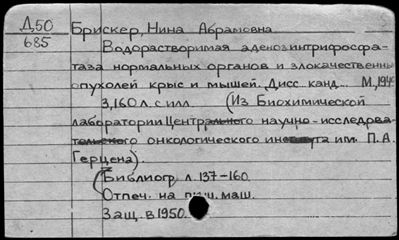 Д,50
685
Брискер, Нина Абрамовна
Водорастворимая аденозинтрифосфа-
таза нормальных органов и злокачественны
опухолей крыс и мышей. Дисс. канд. М,
3,160 л. с илл. (Из Биохимической
лаборатории Центрального научно-исследова-
тельского онкологического института им. П.А.
Герцена).
(Библиогр. л. 137-160.
Отпеч. на пиш. маш.
Защ. в 1950.